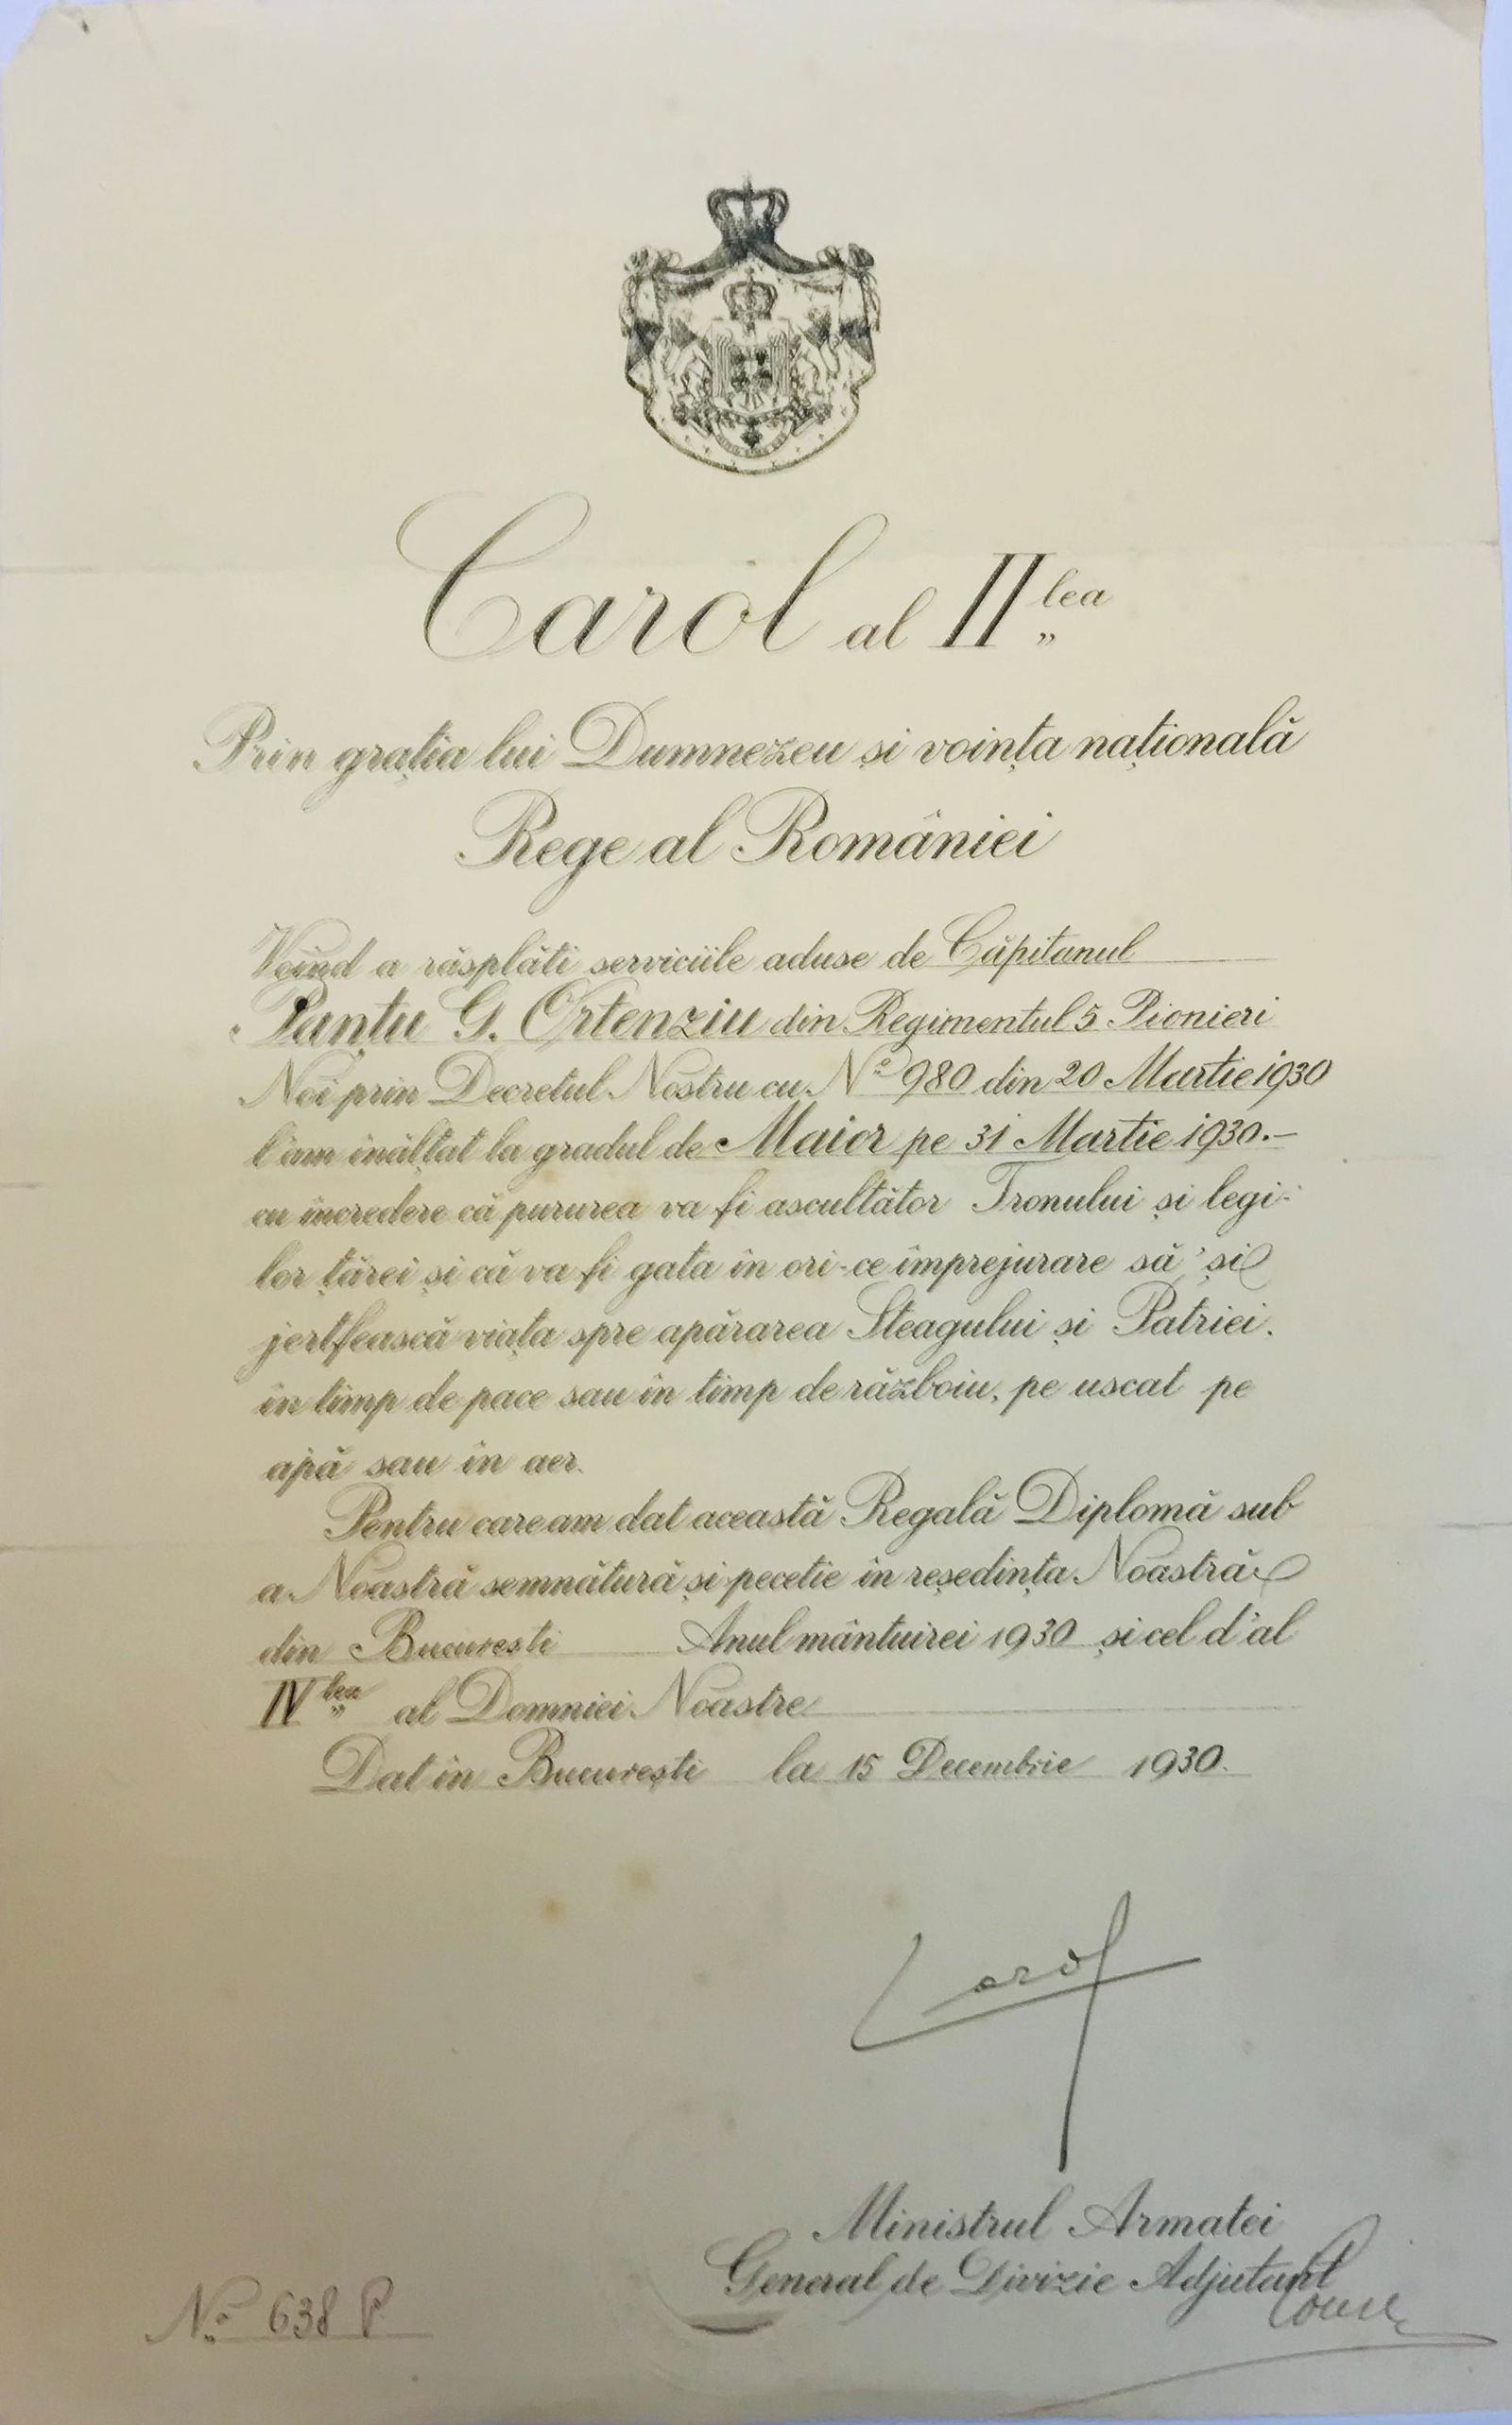 Carol al II lea
Prin grația lui Dumnezeu și voința națională
Rege al României
Voind a răsplăti serviciile aduse de Căpitanul
Panțu G. Ortenziu din Regimentul 5 Pionieri
Noi prin Decretul Nostru cu No 980 din 20 Martie 1930
l'am înălțat la gradul de Maior pe 31 Martie 1930.-
cu încredere că pururea va fi ascultător Tronului și legi-
lor țărei și că va fi gata în ori-ce împrejurare să'și
jertfească viața spre apărarea Steagului și Patriei,
în timp de pace sau în timp de războiu, pe uscat pe
apă sau în aer.
Pentru care am dat această Regală Diplomă sub
a Noastră semnătură și pecetie în reședința Noastră
din București Anul mântuirei 1930 și cel d'al
IV lea al Domniei Noastre
Dat în București la 15 Decembrie 1930.
Carol
Ministrul Armatei
General de Divizie Adjutant
No 638 P